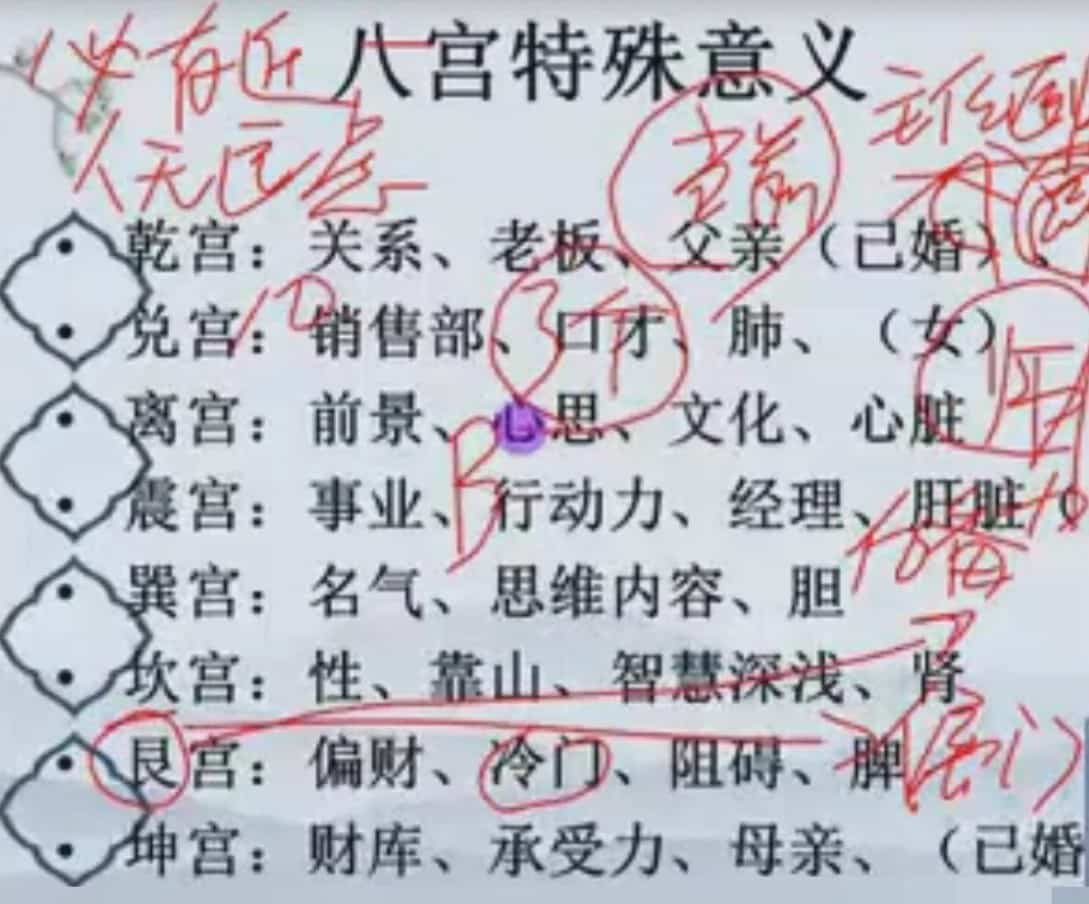 八宫特殊意义
必有近
人无远虑
当前
乾宫：关系、老板、父亲（已婚）、
兑宫：销售部、口才、肺、（女）
离宫：前景、心思、文化、心脏
震宫：事业、行动力、经理、肝脏（
巽宫：名气、思维内容、胆
坎宫：性、靠山、智慧深浅、肾
艮宫：偏财、冷门、阻碍、脾
坤宫：财库、承受力、母亲、（已婚